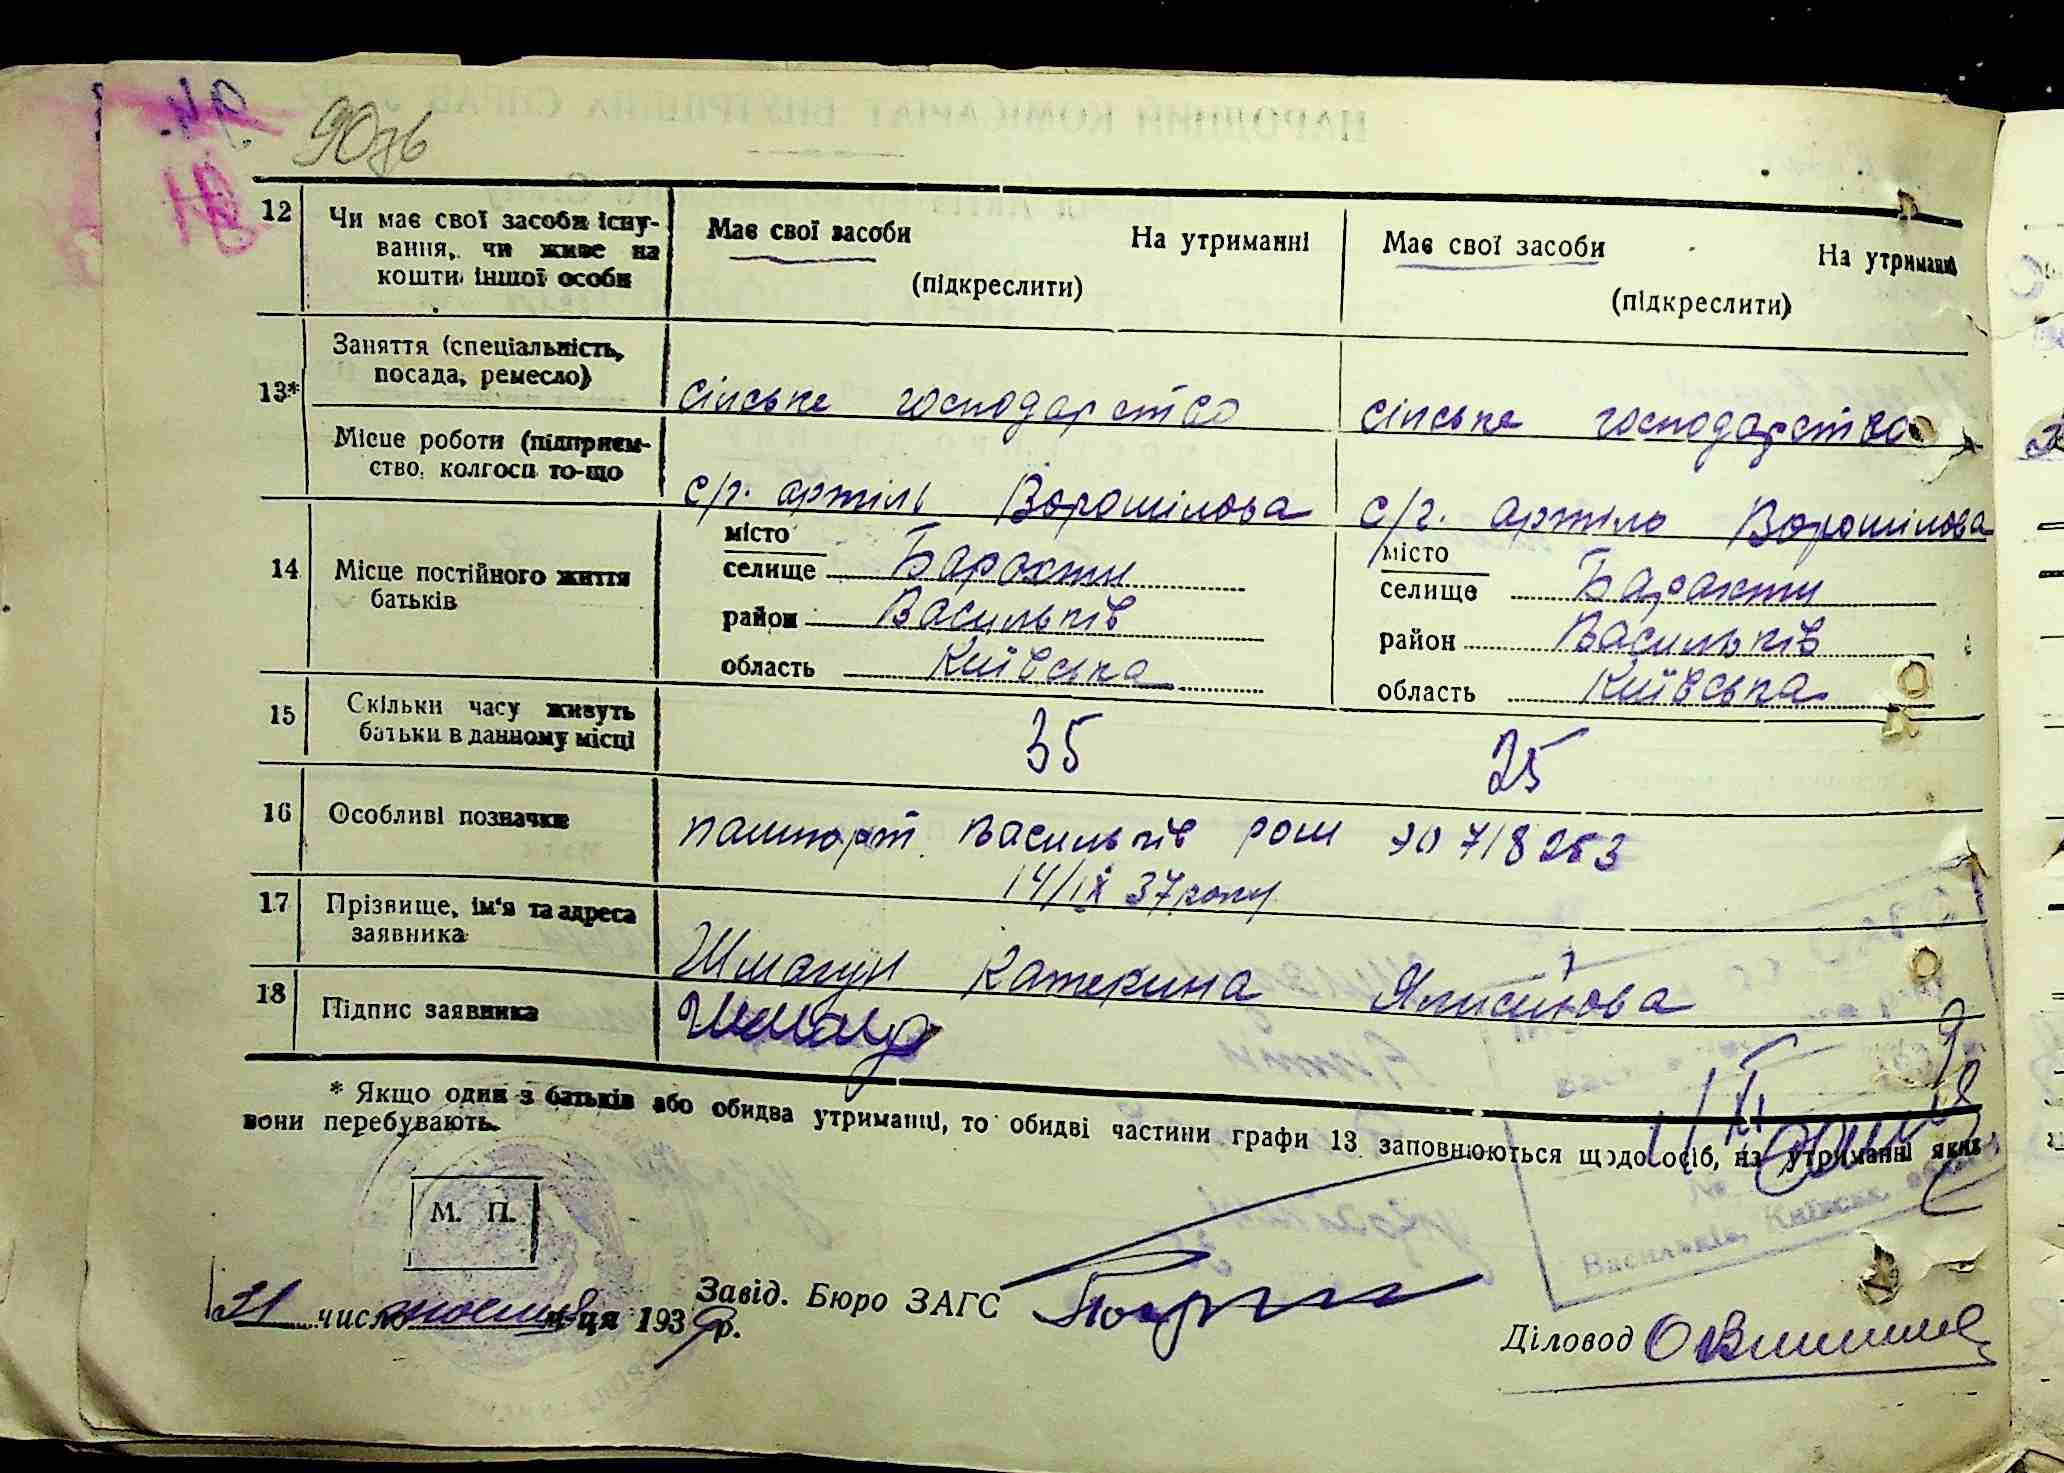 90 зв
12 Чи має свої засоби існу-
вання, чи живе на
кошти іншої особи
Має свої засоби На утриманні
(підкреслити)
Має свої засоби На утриманні
(підкреслити)
13* Заняття (спеціальність,
посада, ремесло)
сільське господарство
сільське господарство
Місце роботи (підприєм-
ство, колгосп то-що
с/г. артіль Ворошілова
с/г. артіль Ворошілова
14 Місце постійного життя
батьків
місто
селище Барахти
район Васильків
область Київська
місто
селище Барахти
район Васильків
область Київська
15 Скільки часу живуть
батьки в данному місці
35
25
16 Особливі позначки
пашпорт Васильків 718253
14/IX 37 року
17 Прізвище, ім'я та адреса
заявника
Шмагун Катерина
18 Підпис заявника
* Якщо один з батьків або обидва утриманці, то обидві частини графи 13 заповнюються щодо осіб, на утриманні яких
вони перебувають.
М. П.
Васильків, Київськ.
21 число м-ця 1939 р.
Завід. Бюро ЗАГС
Діловод